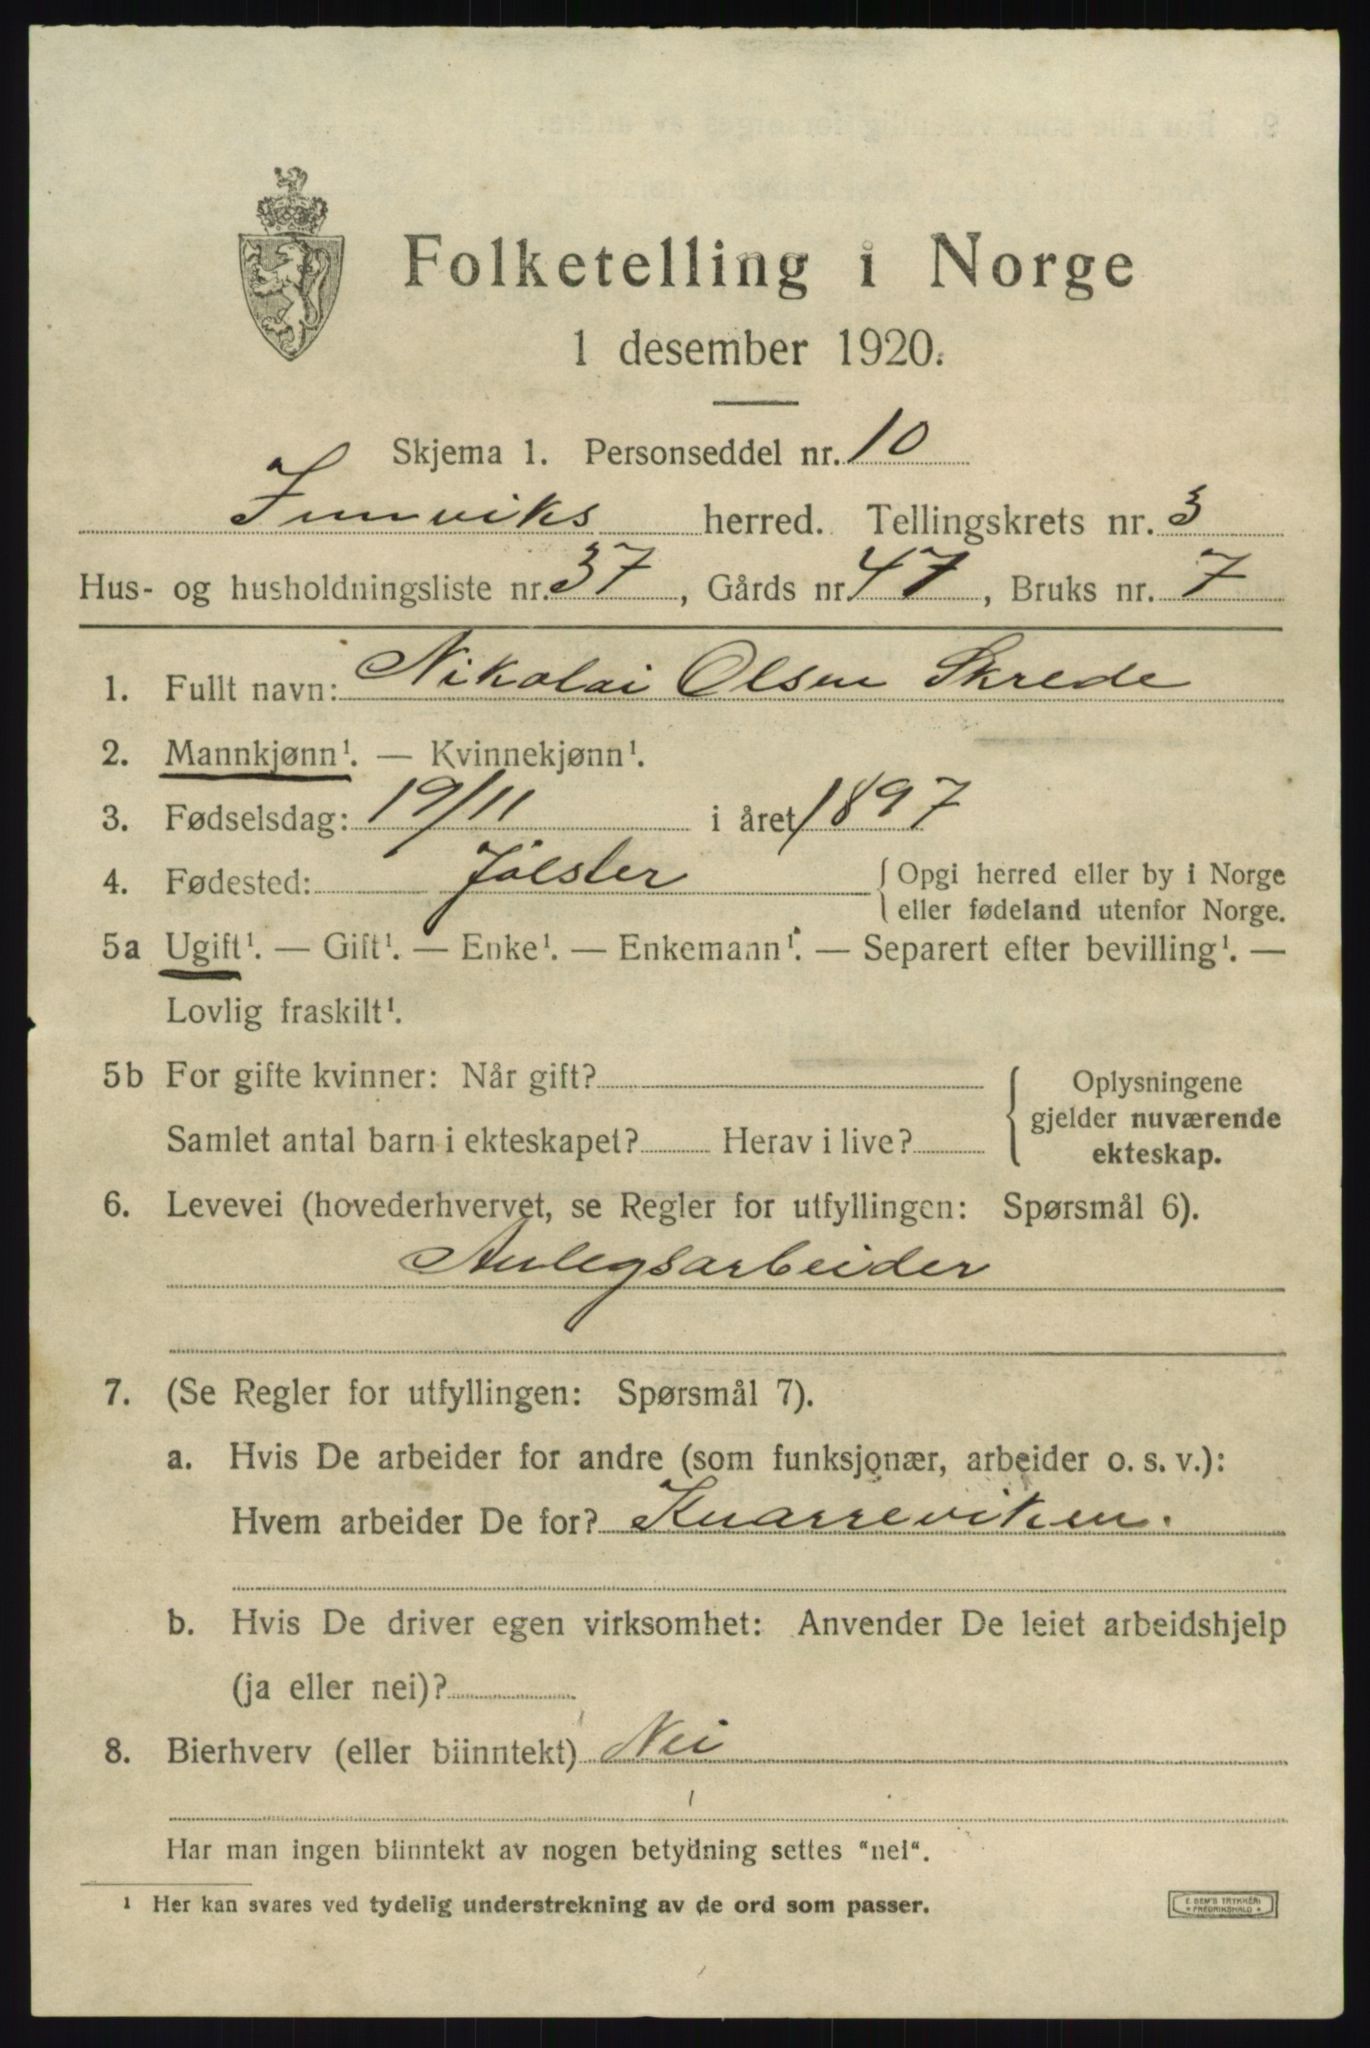 Folketelling i Norge
1 desember 1920.
Skjema 1. Personseddel nr. 10
Innviks herred. Tellingskrets nr. 3
Hus- og husholdningsliste nr. 37, Gårds nr. 47, Bruks nr. 7
1. Fullt navn: Nikolai Olsen Skrede
2. Mannkjønn¹. — Kvinnekjønn¹.
3. Fødselsdag: 19/11 i året 1897
4. Fødested: Jølster { Opgi herred eller by i Norge
eller fødeland utenfor Norge.
5a Ugift¹. — Gift¹. — Enke¹. — Enkemann¹. — Separert efter bevilling¹. —
Lovlig fraskilt¹.
5b For gifte kvinner: Når gift?
Samlet antal barn i ekteskapet? Herav i live?
{ Oplysningene
gjelder nuværende
ekteskap.
6. Levevei (hovederhvervet, se Regler for utfyllingen: Spørsmål 6).
Anlegsarbeider
7. (Se Regler for utfyllingen: Spørsmål 7).
a. Hvis De arbeider for andre (som funksjonær, arbeider o. s. v.):
Hvem arbeider De for? Knarreviken.
b. Hvis De driver egen virksomhet: Anvender De leiet arbeidshjelp
(ja eller nei)?
8. Bierhverv (eller biinntekt) Nei
Har man ingen biinntekt av nogen betydning settes "nei".
¹ Her kan svares ved tydelig understrekning av de ord som passer.
E. SEM'S TRYKKERI
* FREDRIKSHALD *